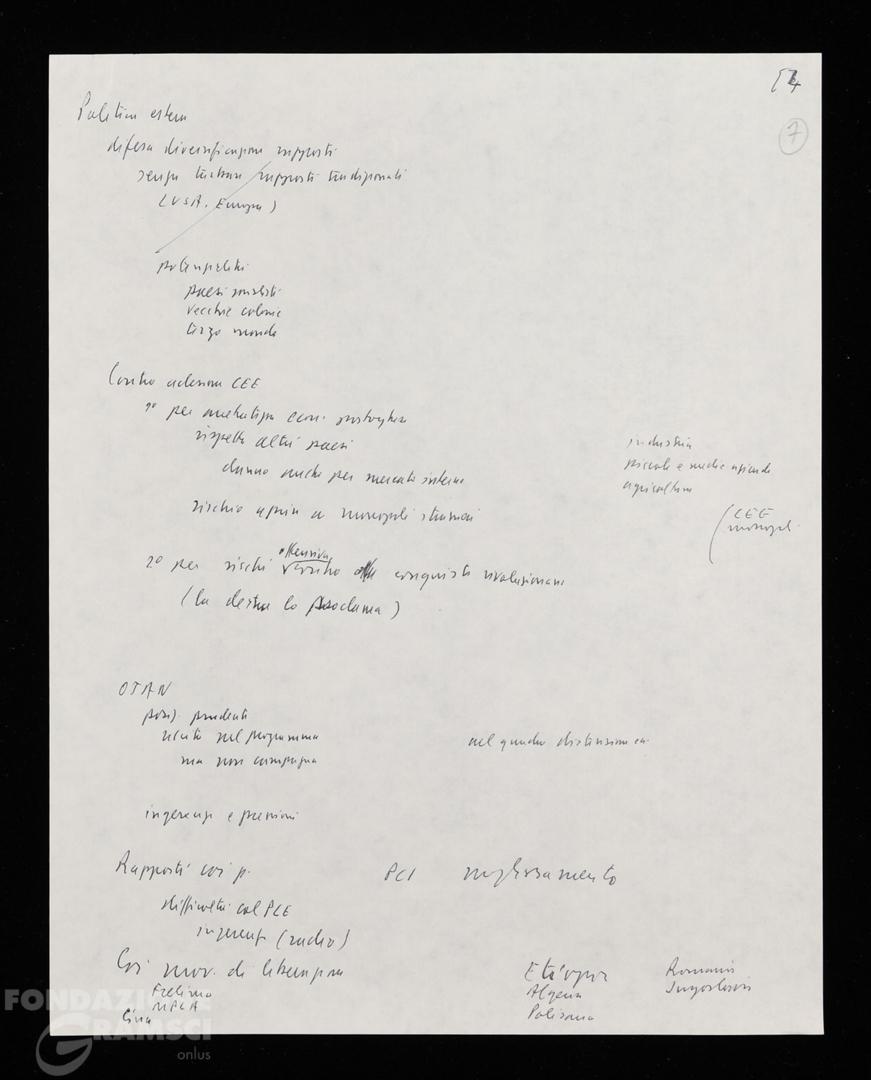 54
7
Politica estera
difesa diversificazione rapporti
senza turbare rapporti tradizionali
(USA. Europa)
paesi socialisti
vecchie colonie
terzo mondo
Contro adesione CEE
1º per arretratezza econ. portoghese
rispetto altri paesi
danno anche per mercato interno
industria
piccole e medie aziende
agricoltura
rischio aprire a monopoli stranieri
(CEE
monopoli
2º per rischi offensiva contro conquiste rivoluzionarie
(la destra lo proclama)
OTAN
posiz. prudente
uscita nel programma
nel quadro distensione
ma non campagna
ingerenze e pressioni
Rapporti coi p.
PCI miglioramento
difficoltà col PCE
ingerenze (radio)
Coi mov. di liberazione
Frelimo
MPLA
Cina
Etiopia
Algeria
Polisario
Romania
Jugoslavia
FONDAZIONE
GRAMSCI
onlus